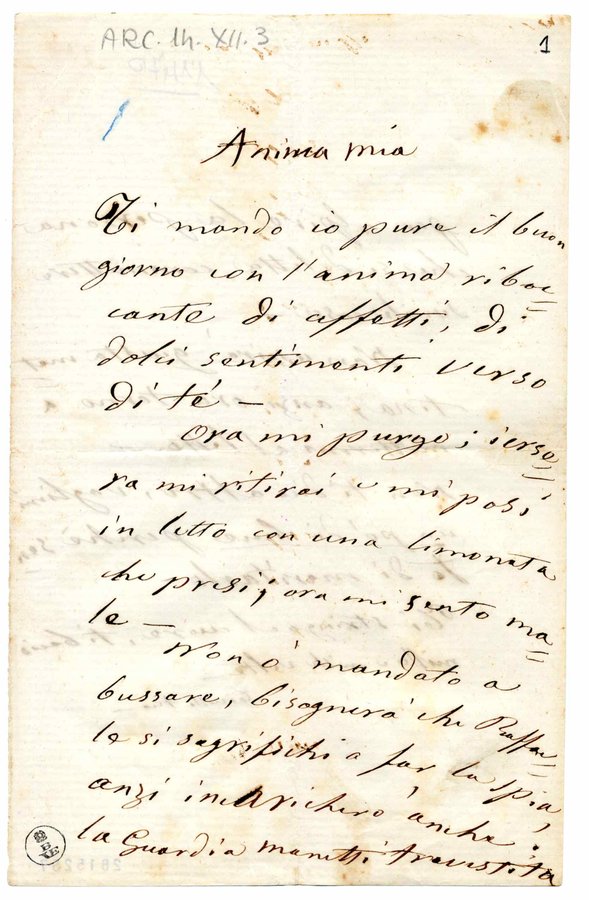 ARC. 14. XII. 3
1
Anima mia
Ti mando io pure il buon
giorno con l'anima riboc=
cante di affetti, di
dolci sentimenti verso
di té —
Ora mi purgo; ierse=
ra mi ritirai e mi posi
in letto con una limonata
che presi; ora mi sento ma=
le —
Non ò mandato a
bussare, bisognerà che Raffae=
le si sagrifichi a far la spia,
anzi incaricherò anche
la Guardia Manetti travestita